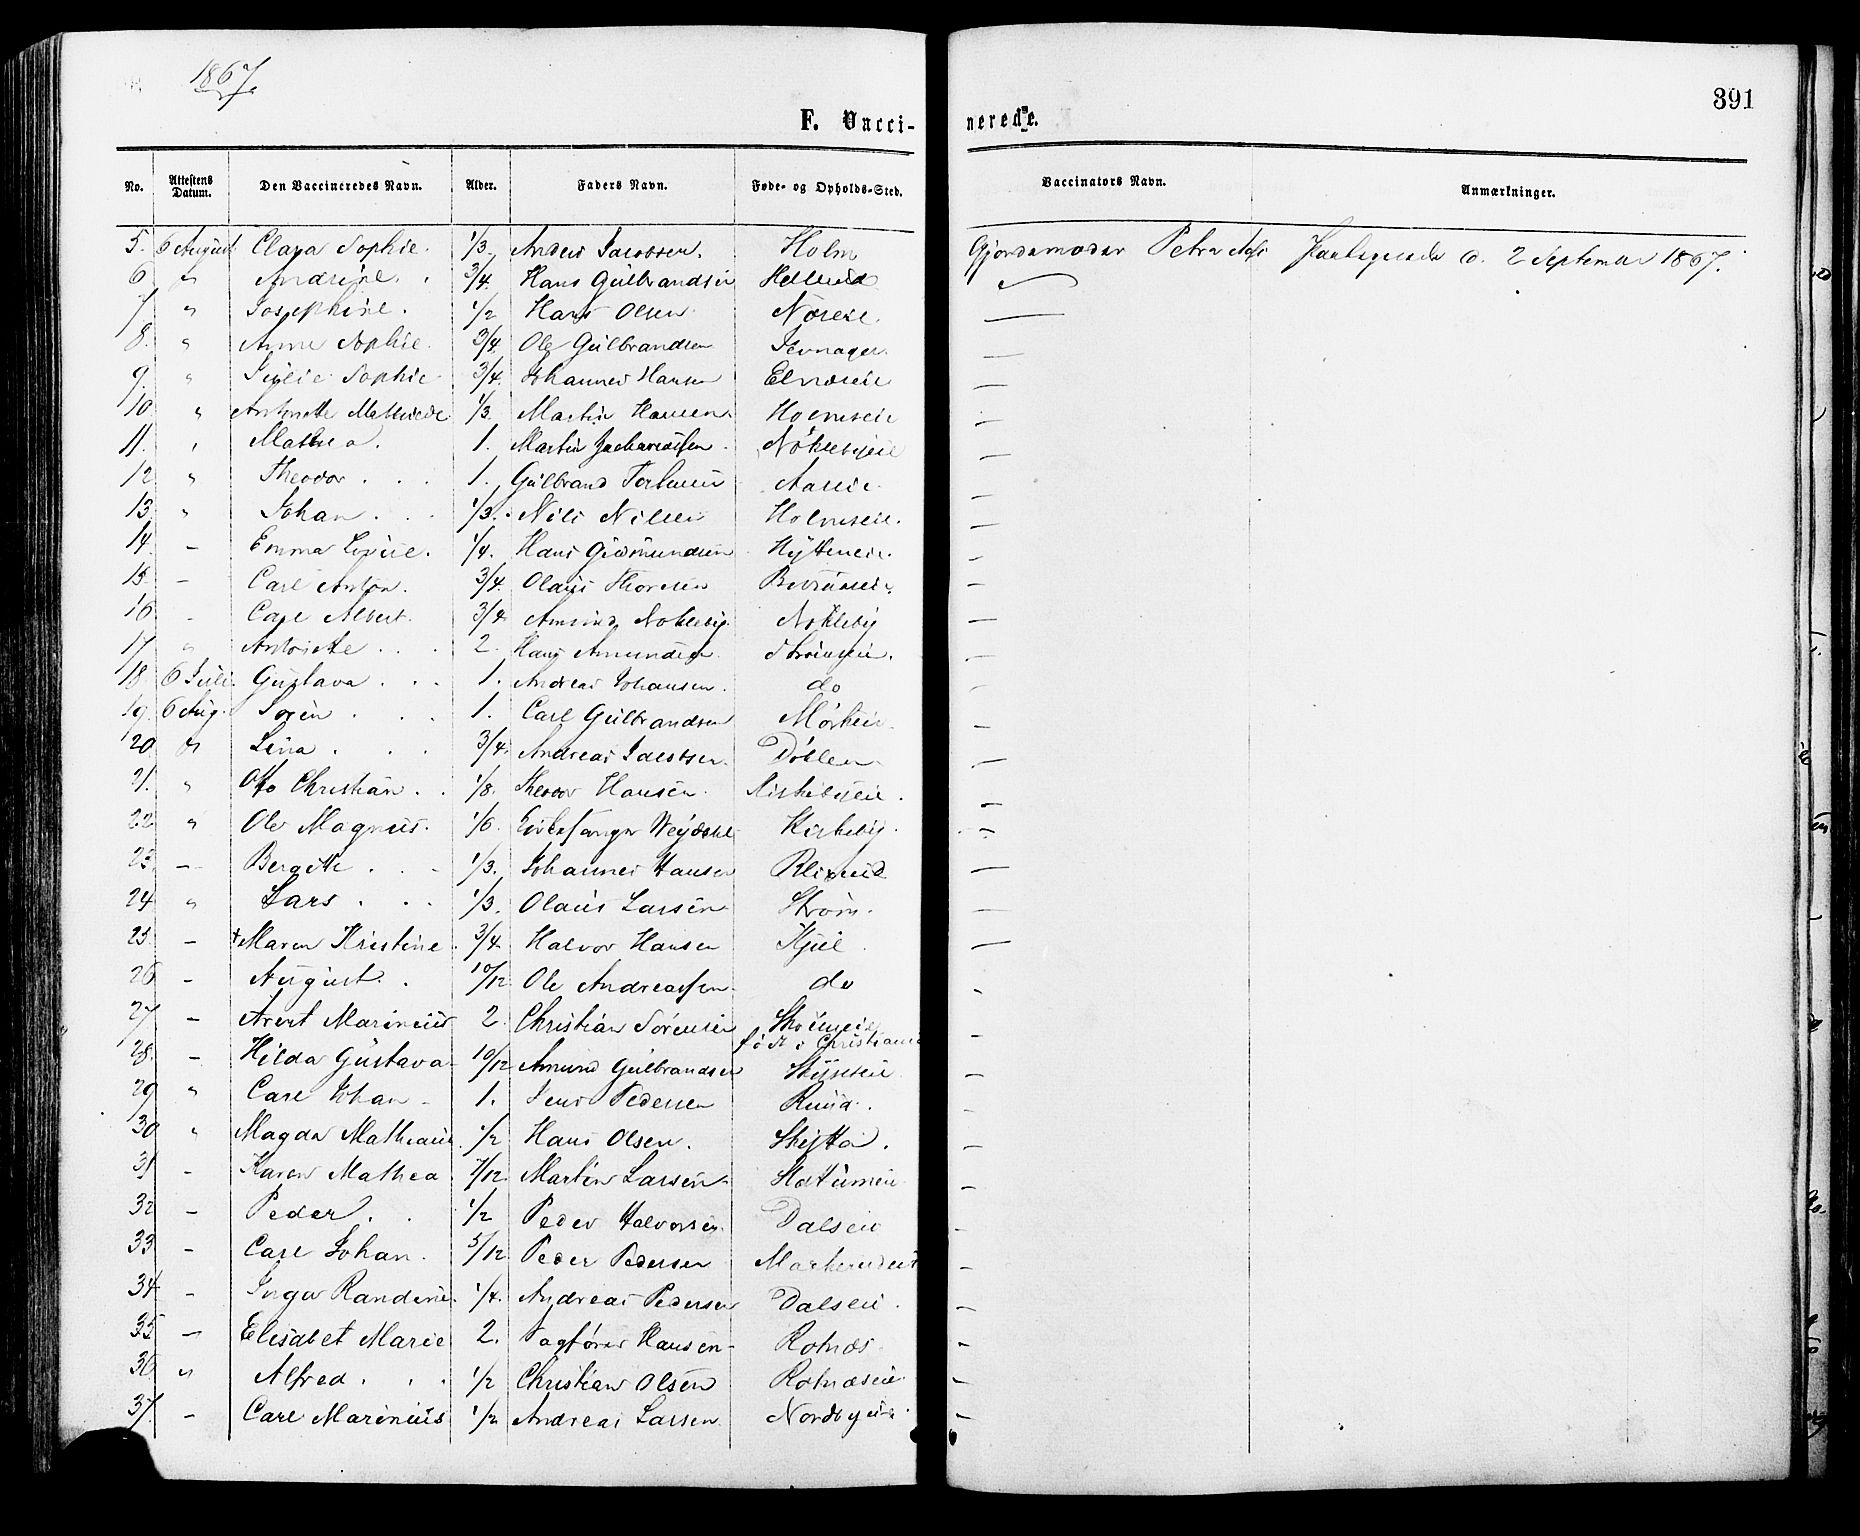 1867.
391
F. Vacci-nerede.
No. Attestens Datum. Den Vaccineredes Navn. Alder. Faders Navn. Føde- og Opholds-Sted. Vaccinators Navn. Anmærkninger.
5. 6 August Clara Sophie. 1/3. Anders Jacobsen. Holm Gjordemoder Petra September 1867.
6 " Andrine. 3/4. Hans Gulbrandsen Hellerud
7 " Josephine. 1/2 Hans Olsen Næseie
8. " Anne Sophie. 3/4. Ole Gulbrandsen Jevnager.
9. " Julie Sophie 3/4. Johannes Hansen Elnæseie
10. " Antonette Mathilde 1/3. Martin Hansen Holmseie
11. " Mathea. 1. Martin Zachariassen. Nöklebyeie
12 " Theodor . . . 1. Gulbrand Aaseie.
13. " Johan . . . 1/3. Nils Nilsen Holmseie.
14. - Emma Lovise. 1/4. Hans Gudmundsen Hytteneie.
15. - Carl Anton. 3/4. Olaus Thoresen
16 - Carl Albert. 3/4. Amund Nökleby. Nökleby
17 " Antonette . . . 2. Hans Amundsen Strömseie.
18. 6 Juli. Gustava . . . 1. Andreas Johansen. do
19. 6 Aug. Søren . . . 1. Carl Gulbrandsen Mörkeie.
20. " Lina . . . 3/4. Andreas Jacobsen. Döhlen
21. " Otto Christian . . 1/8. Theodor Hansen. Kirkebyeie.
22 " Ole Magnus. 1/6. Kirkesanger Weydahl Kirkeby.
23. - Bergitte . . . 1/3. Johannes Hansen Klixrud
24 " Lars . . . 1/3. Olaus Larsen Ström.
25. - † Maren Kristine. 3/4. Halvor Hansen Kjul.
26 - August . . 10/12 Ole Andreassen. do
27 - Arent Marinius 2. Christian Sörensen Strömseie
født i Christiania
28. - Hilda Gustava 10/12 Amund Gulbrandsen
29 " Carl Johan - 1. Jens Pedersen Ruud.
30 " Magda Mathea 1/2 Hans Olsen. Skytta.
31 - Karen Mathea 7/12. Martin Larsen Slattumeie
32 - Peder . . 1/2 Peder Halvorsen. Dalseie
33 - Carl Johan. 5/12 Peder Pedersen Markerudeie
34 - Inga Randine. 1/4. Andreas Pedersen Dalseie.
35 - Elisabet Marie 2. Hansen- Rotnæs
36 " Alfred . . . 1/2 Christian Olsen Rotnæseie
37. - Carl Marinius 1/2 Andreas Larsen Nordbyeie.